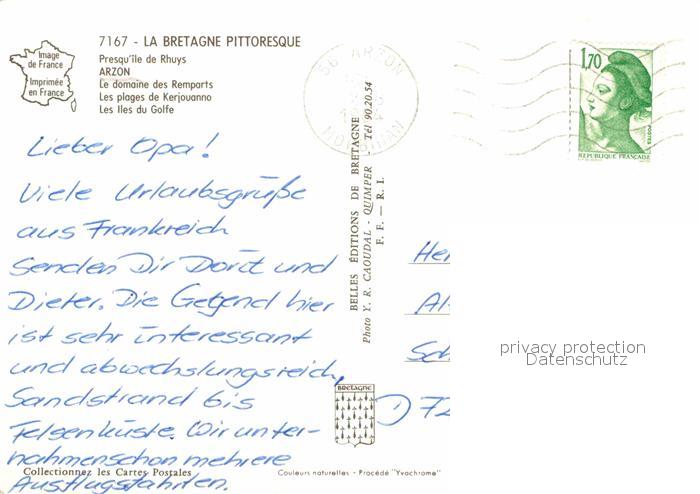 7167 - LA BRETAGNE PITTORESQUE
Presqu'île de Rhuys
ARZON
Le domaine des Remparts
Les plages de Kerjouanno
Les Iles du Golfe
Image
de France
Imprimée
en France
56 ARZON
MORBIHAN
1,70
POSTES
REPUBLIQUE FRANÇAISE
Lieber Opa!
Viele Urlaubsgrüße
aus Frankreich
senden Dir Dorit und
Dieter. Die Gegend hier
ist sehr interessant
und abwechslungsreich,
Sandstrand bis
Felsenküste. Wir unter-
nahmen schon mehrere
Ausflugsfahrten.
BELLES ÉDITIONS DE BRETAGNE
Photo Y. R. CAOUDAL - QUIMPER - Tél 90.20.54
F. F. — R. I.
Her
Al
Sch
D 72
privacy protection
Datenschutz
BRETAGNE
Collectionnez les Cartes Postales
Couleurs naturelles - Procédé "Yvachrome"